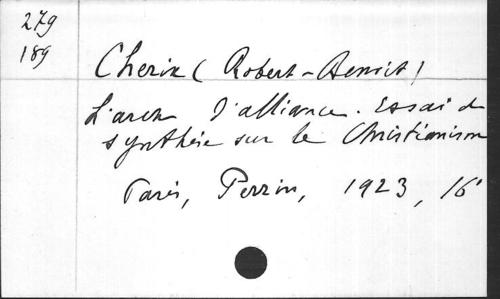 279
189
Cherix (Robert-Benoit)
L'arche d'alliance. Essai de
synthèse sur le Christianisme
Paris, Perrin, 1923, 16°